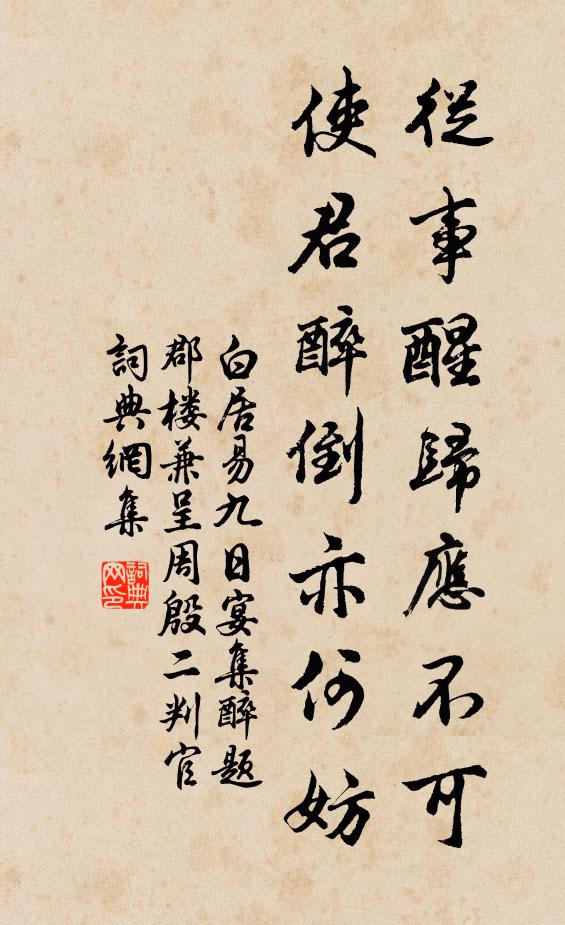 從事醒歸應不可
使君醉倒亦何妨
白居易九日宴集醉題
郡楼兼呈周殷二判官
詞典網集
詞典网印